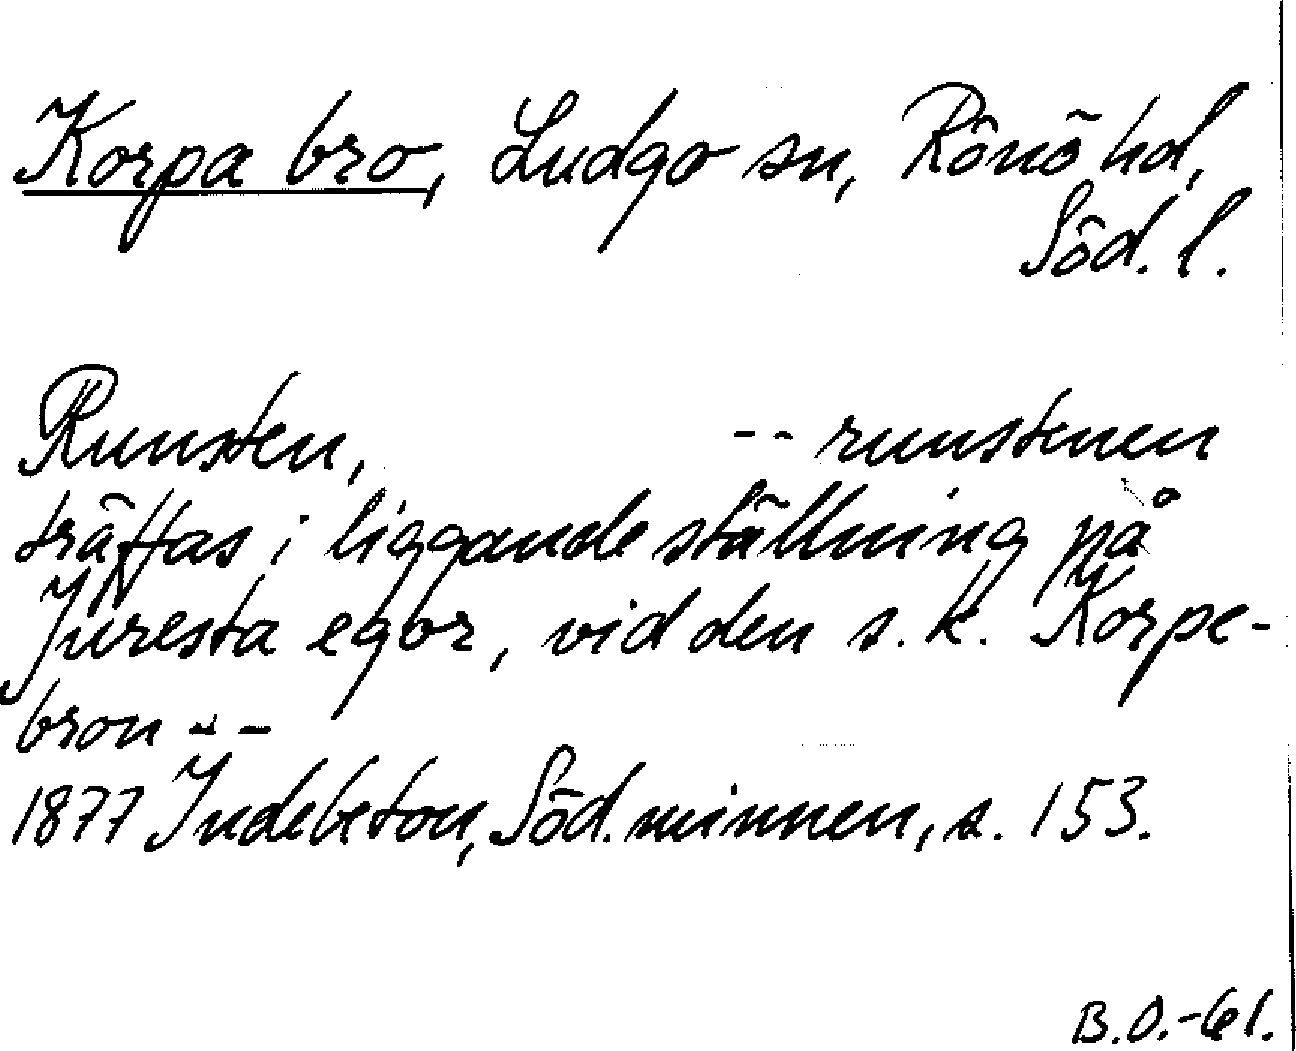 Korpa bro, Ludgo sn, Rönö hd,
Söd. l.
Runsten, -- runstenen
träffas i liggande ställning på
Juresta egor, vid den s.k. Korpe-
bron --
1877 Indebetou, Söd. minnen, s. 153.
B.O.-61.